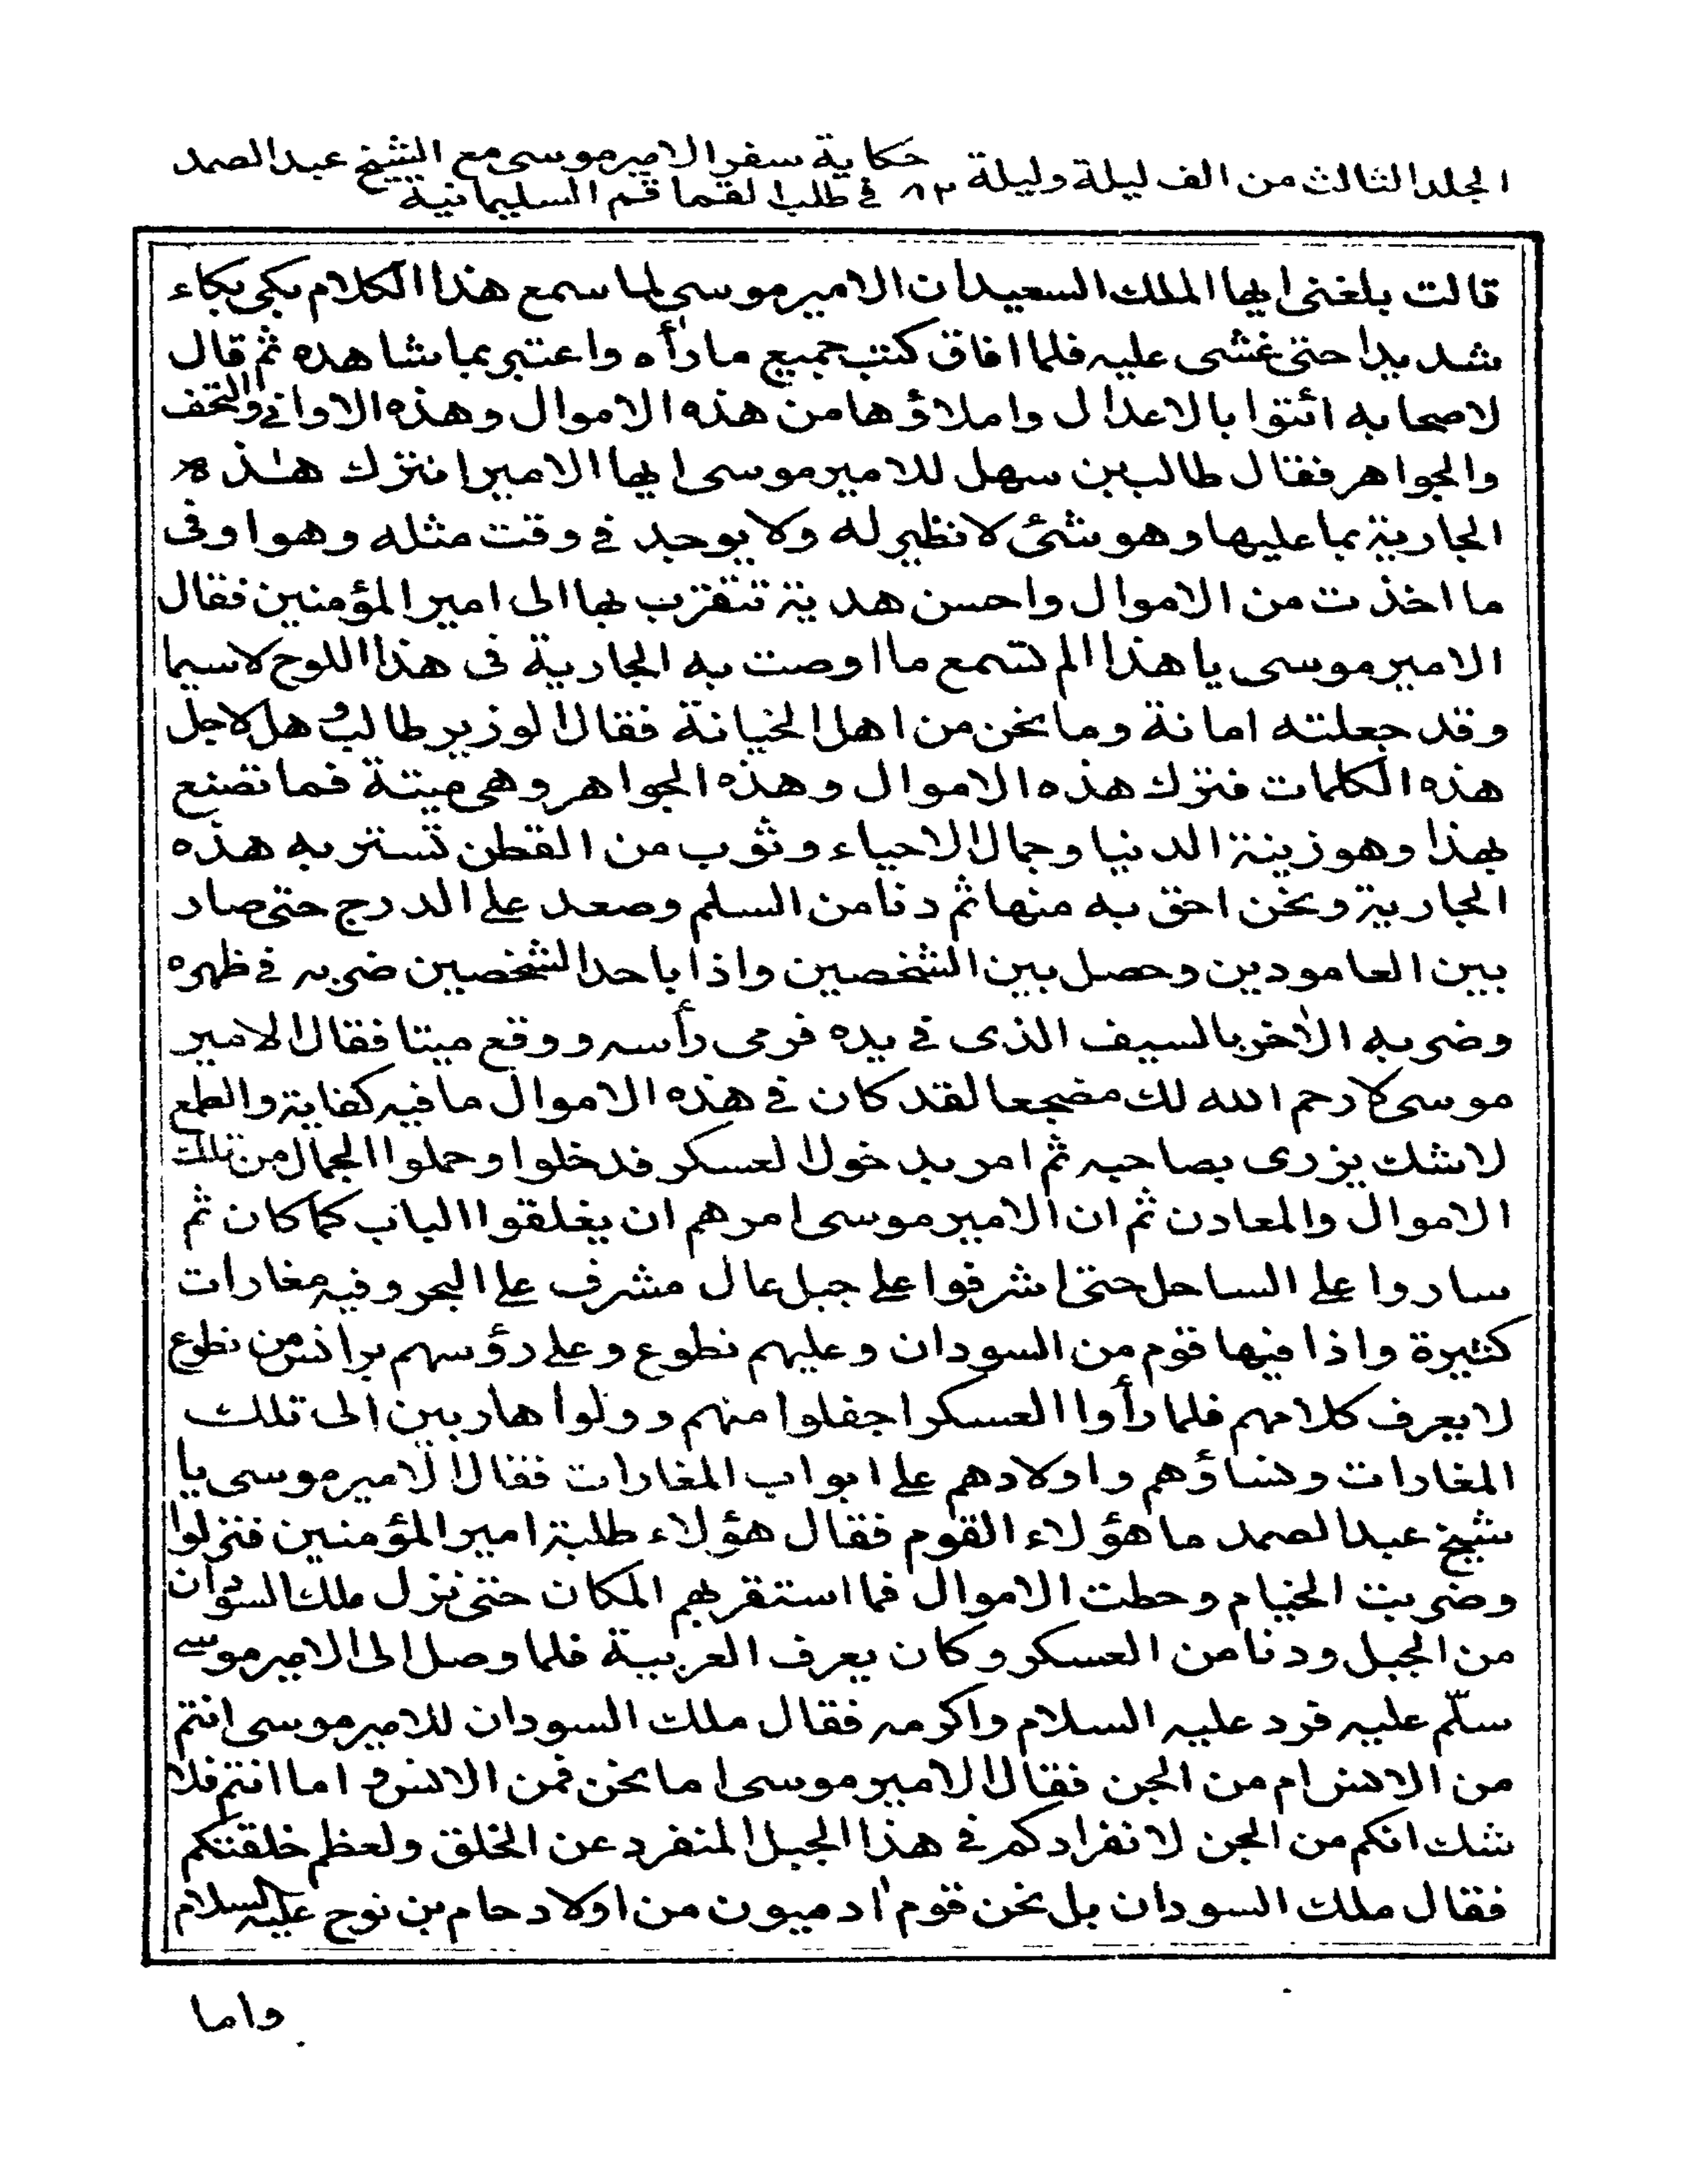 المجلد الثالث من الف ليلة وليلة ٨٣ حكاية سفر الامير موسى مع الشيخ عبد الصمد
في طلب القماقم السليمانية
قالت بلغنى ايها الملك السعيد ان الامير موسى لما سمع هذا الكلام بكى بكاء
شديدا حتى غشى عليه فلما افاق كتب جميع ما رأه واعتبر بما شاهده ثم قال
لاصحابه ائتوا بالاعدال واملاؤها من هذه الاموال وهذه الاوانى والتحف
والجواهر فقال طالب بن سهل للامير موسى ايها الامير انترك هذه
الجارية بما عليها وهو شئ لا نظير له ولا يوجد في وقت مثله وهو اوفى
ما اخذت من الاموال واحسن هدية تتقرب بها الى امير المؤمنين فقال
الامير موسى يا هذا الم تسمع ما اوصت به الجارية فى هذا اللوح لاسيما
وقد جعلته امانة وما نحن من اهل الخيانة فقال الوزير طالب وهل لاجل
هذه الكلمات فترك هذه الاموال وهذه الجواهر وهى ميتة فما تصنع
بهذا وهو زينة الدنيا وجمال الاحياء وثوب من القطن تستر به هذه
الجارية ونحن احق به منها ثم دنا من السلم وصعد على الدرج حتى صار
بين العامودين وحصل بين الشخصين واذا باحد الشخصين ضربه في ظهره
وضربه الآخر بالسيف الذى في يده فرمى رأسه ووقع ميتا فقال الامير
موسى لا رحم الله لك مضجعا لقد كان في هذه الاموال ما فيه كفاية والطمع
لا شك يزرى بصاحبه ثم امر بدخول العسكر فدخلوا وحملوا الجمال من تلك
الاموال والمعادن ثم ان الامير موسى امرهم ان يغلقوا الباب كما كان ثم
ساروا على الساحل حتى اشرفوا على جبل عال مشرف على البحر وفيه مغارات
كثيرة واذا فيها قوم من السودان وعليهم نطوع وعلى رؤسهم برانس من نطوع
لا يعرف كلامهم فلما رأوا العسكر اجفلوا منهم وولوا هاربين الى تلك
المغارات ونساؤهم واولادهم على ابواب المغارات فقال الامير موسى يا
شيخ عبد الصمد ما هؤلاء القوم فقال هؤلاء طلبة امير المؤمنين فنزلوا
وضربت الخيام وحطت الاموال فما استقر بهم المكان حتى نزل ملك السودان
من الجبل ودنا من العسكر وكان يعرف العربية فلما وصل الى الامير موسى
سلّم عليه فرد عليه السلام واكرمه فقال ملك السودان للامير موسى انتم
من الانس ام من الجن فقال الامير موسى اما نحن فمن الانس و اما انتم فلا
شك انكم من الجن لانفرادكم في هذا الجبل المنفرد عن الخلق ولعظم خلقتكم
فقال ملك السودان بل نحن قوم آدميون من اولاد حام بن نوح عليه السلام
واما